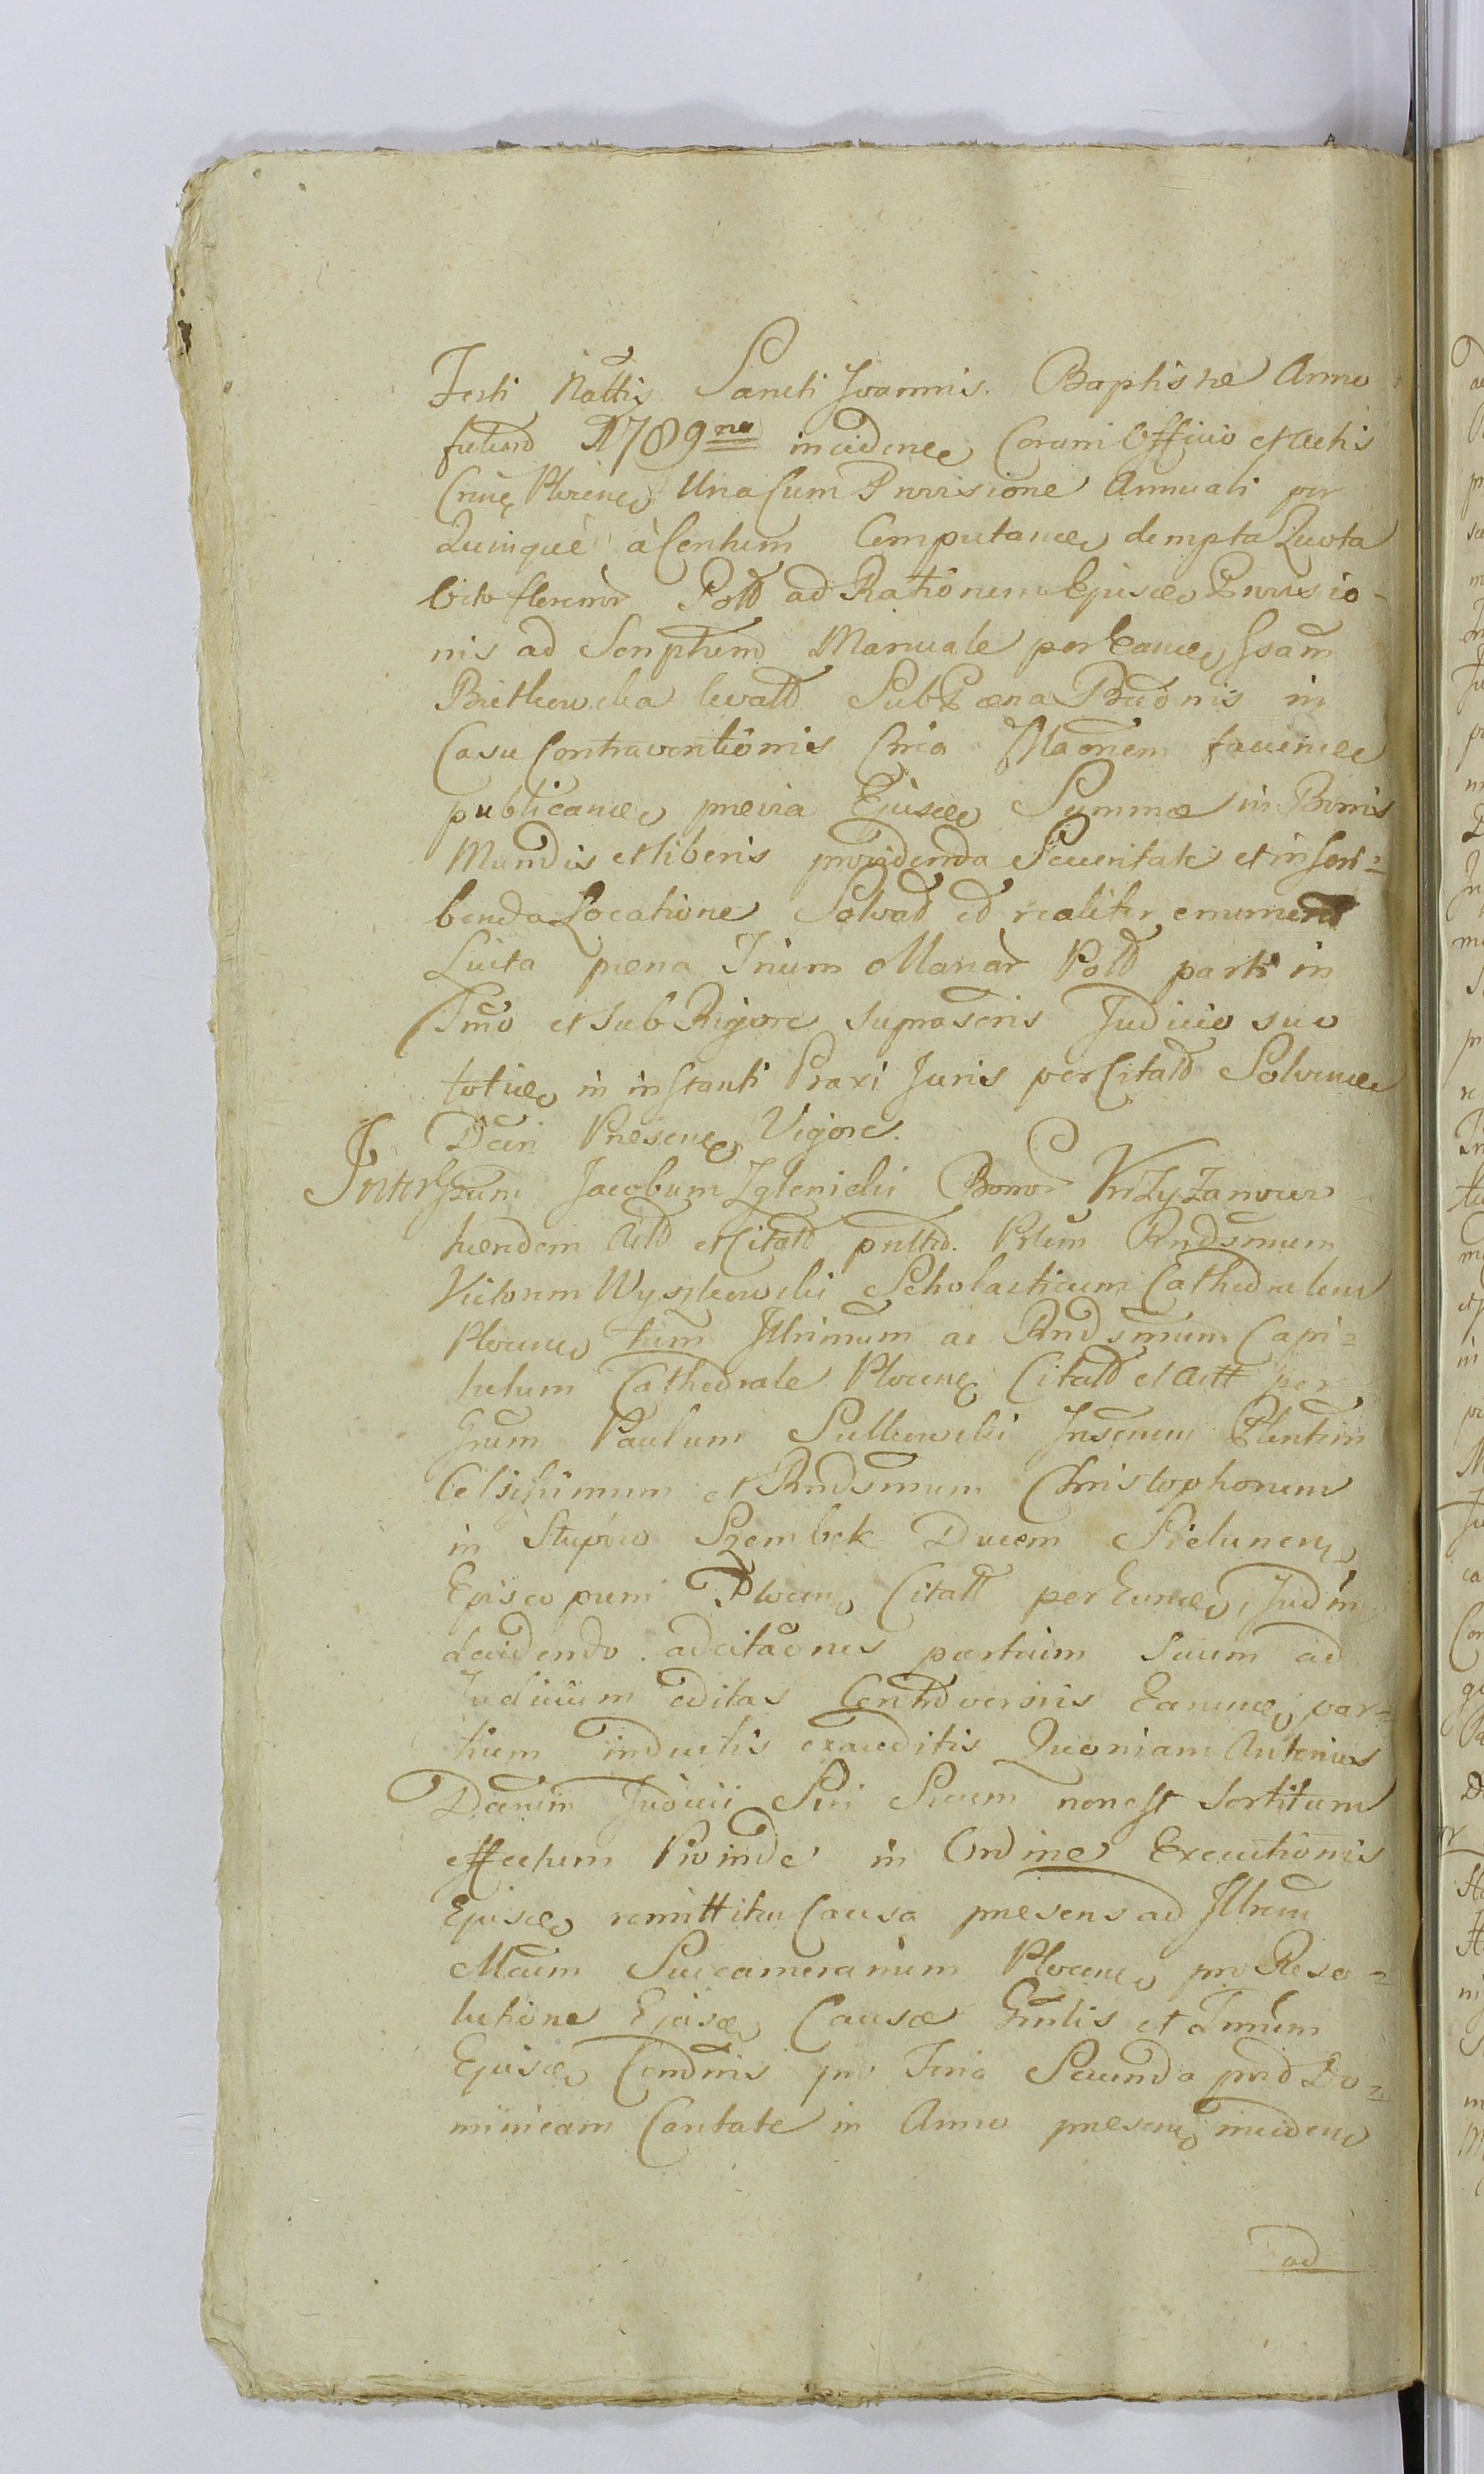 Festi Nattis Sancti Joannis Baptistæ Anno
futuro 1789no incidenee Coram Officio et Actis
Plocine Una Cum Provisione Annuali per
Quinque à Centum Computanee dempta Quota
Octo flerenor Poll ad Rationem Ejusce Provisio-
nis ad Scriptum Manuale per Eance Gsam
levatt Sub Pæna Badnis in
Casu Contraventionis faciendee
publicance prævia Ejusce Summæ in Bonis
Mundis et liberis providenda Securitate et inscri=
benda Locatione Solvat et realiter enumeret
Luita pæna Trium Marcar Poll parti in
Tmo et sub Rigore suprascris Judicio suo
toties in instanti Praxi Juris per Citatt Solvence
Dcri Presene Vigore.
Inter Gsum Jacobum Zglenicki Bonor Krzyzanowo
hæredem Att et Citatt Prlem Rndsmum
Victorem Wyszkowski Scholasticum Cathedralem
Plocene tum Illrimum ac Rndsmum Capi=
tulum Cathedrale Plocene Citatt et Att per
Gsum Paulum Sulkowski
Celsissimum et Rndsmum Christophorum
in Słupow Szembek Ducem Sielunene
Episcopum Plocene Citatt per Eunce, Judm
decidendo ad citaones partium Suum ad
Judicium editas Controversiis Earunce par=
tium inductis exauditis Quoniam Anterius
Dcrum Judicii Sui Suum non est sortitum
effectum Proinde in Ordine Executionis
Ejusce remittitur Causa præsens ad Illrem
Mcum Succamerarium Plocene pro Reso=
lutione Ejusce Causæ Gntlis et Tmum
Ejusce Condnis pro Feria Secunda post Do=
minicam Cantate in Anno præsene inciden
ad